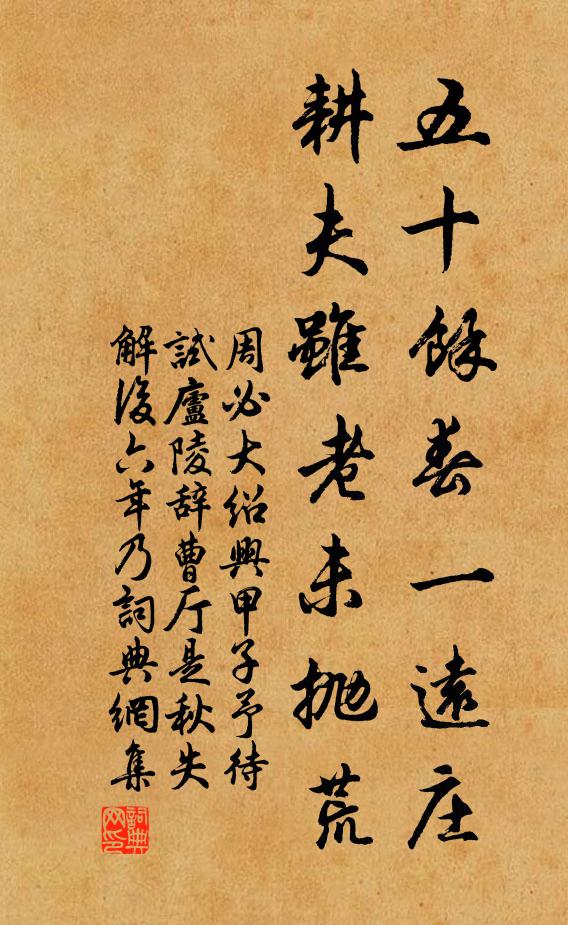 五十餘春一遠庄
耕夫雖老未抛荒
周必大紹興甲子予待
試廬陵辞曹厅是秋失
解後六年乃詞典網集
詞典网印